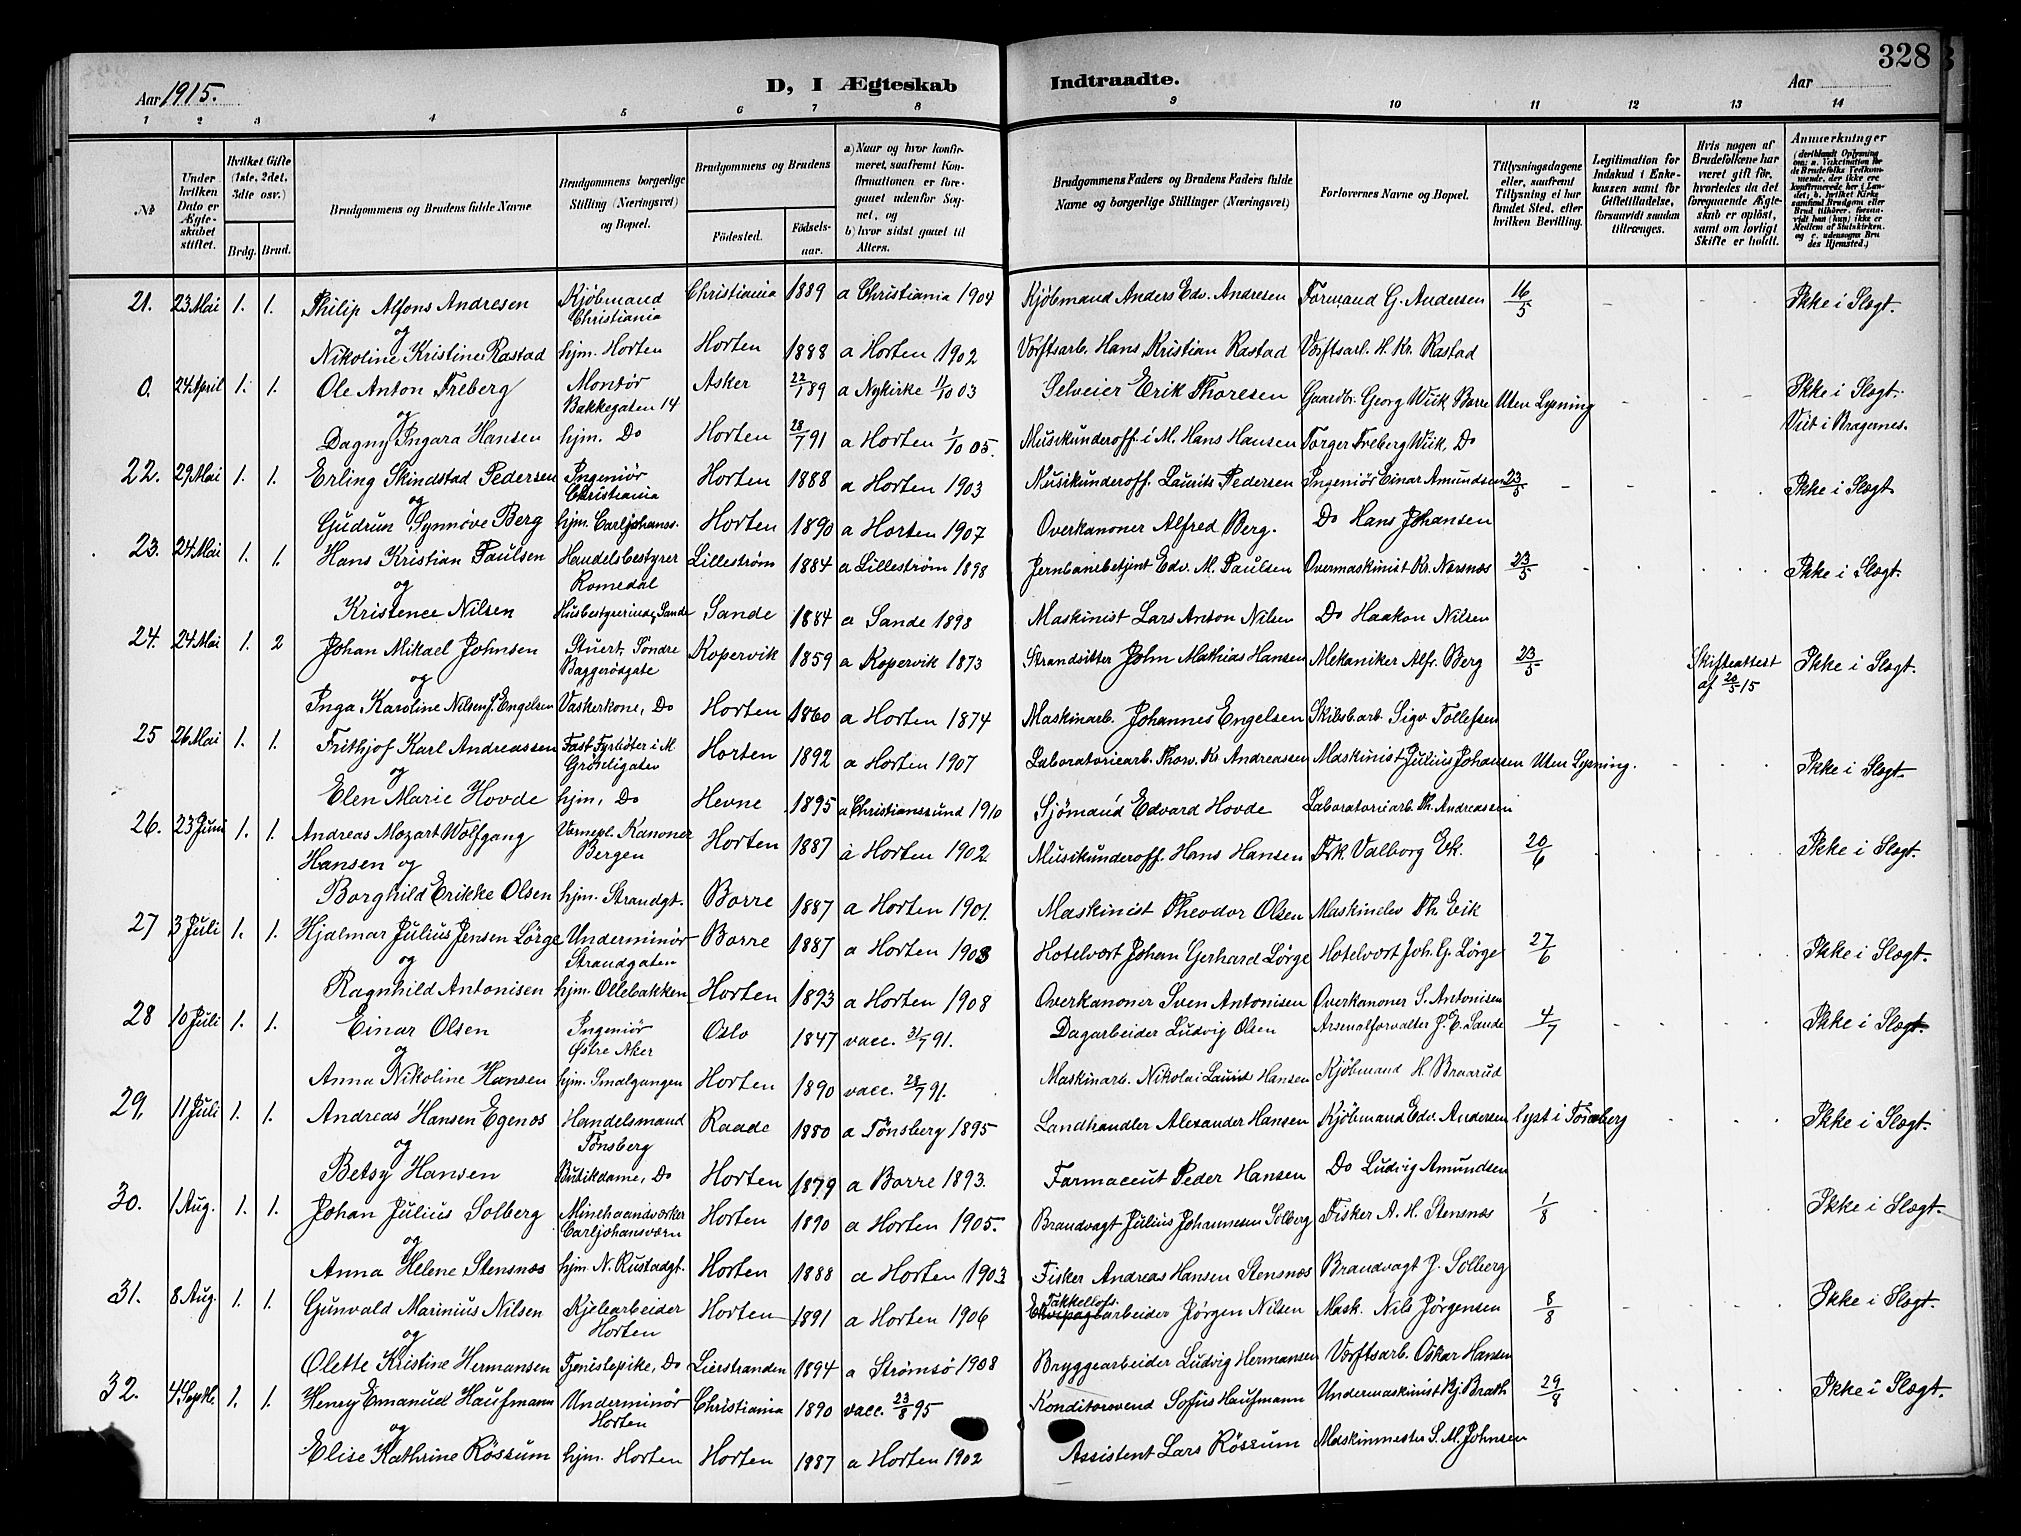 328
Aar 1915.
D, I Ægteskab Indtraadte.
Aar
1 2 3 4 5 6 7 8 9 10 11 12 13 14
No
Under hvilken Dato er Ægteskabet stiftet.
Hvilket Gifte (1ste, 2det, 3dte osv.)
Brdg. Brud.
Brudgommens og Brudens fulde Navne
Brudgommens borgerlige Stilling (Næringsvei) og Bopæl.
Brudgommens og Brudens
Fødested. Fødsels-aar.
a) Naar og hvor konfirmeret, saafremt Konfirmationen er foregaaet udenfor Sognet, og
b) hvor sidst gaaet til Alters.
Brudgommens Faders og Brudens Faders fulde Navne og borgerlige Stillinger (Næringsvei)
Forlovernes Navne og Bopæl.
Tillysningsdagene eller, saafremt Tillysning ei har fundet Sted, efter hvilken Bevilling.
Legitimation for Indskud i Enkekassen samt for Giftetilladelse, forsaavidt saadan tiltrænges.
Hvis nogen af Brudefolkene har været gift før, hvorledes da det foregaaende Ægteskab er opløst, samt om lovligt Skifte er holdt.
Anmerkninger (deriblandt Oplysning om: a. Vakcination for de Brudefolks Vedkommende, der ikke ere konfirmerede her i Landet, b. hvilket Kirkesamfund Brudgom eller Brud tilhører, forsaavidt han (hun) ikke er Medlem af Statskirken, og c. udensogns Brudes Hjemsted.)
21. 23 Mai 1. 1. Philip Alfons Andresen Kjøbmand Christiania Christiania 1889 a Christiania 1904 Kjøbmand Anders Edv. Andresen Formand G. Andersen 16/5 - - - Ikke i Slægt.
og
Nikoline Kristine Rastad hjm. Horten Horten 1888 a Horten 1902 Værftsarb. Hans Kristian Rastad Værftsarb. H. Kr. Rastad
0. 24 April 1. 1. Ole Anton Freberg Montør Bakkegaten 14 Asker 22/7 89 a Nykirke 11/10 03 Selveier Erik Thoresen Gaardbr. Georg Wiik Borre Uten Lysning - - - Ikke i Slægt. Viet i Bragernes.
og
Dagny Ingara Hansen hjm. Do Horten 28/7 91 a Horten 1/10 05. Musikunderoff. i M. Hans Hansen Torger Freberg Wiik, Do
22. 29 Mai 1. 1. Erling Skindstad Pedersen Ingeniør Christiania Horten 1888 a Horten 1903 Musikunderoff. Laurits Pedersen Ingeniør Einar Amundsen 23/5 - - - Ikke i Slægt
og
Gudrun Synnøve Berg hjm. Carljohanss. Horten 1890 a Horten 1907 Overkanoner Alfred Berg. Do Hans Johansen
23. 24 Mai 1. 1. Hans Kristian Paulsen Handelsbestyrer Romedal Lillestrøm 1884 a Lillestrøm 1898 Jernbanebetjent Edv. M. Paulsen Overmaskinist Kr. Narsnæs 23/5 - - - Ikke i Slægt.
og
Kristence Nilsen Husbestyrerinde, Sande Sande 1884 a Sande 1898 Maskinist Lars Anton Nilsen Do Haakon Nilsen
24. 24 Mai 1. 2 Johan Mikael Johnsen Stuert, Søndre Baggerødgate Kopervik 1859 a Kopervik 1873 Strandsitter John Mathias Hansen Mekaniker Alfr. Berg 23/5 Skifteattest af 20/5 15 Ikke i Slægt.
og
Inga Karoline Nilsen f. Engelsen Vaskerkone, Do Horten 1860 a Horten 1874 Maskinarb. Johannes Engelsen Skibsb.arb. Sigv. Tollefsen
25 26 Mai 1. 1. Frithjof Karl Andreassen Fast Fyrbøter i M. Grønligaten Horten 1892 a Horten 1907 Laboratoriearb. Thorv. Kr. Andreassen Maskinist Julius Johansen Uten Lysning. - - - Ikke i Slægt.
og
Elen Marie Hovde hjm, Do Hevne 1895 a Christianssund 1910 Sjømand Edvard Hovde Laboratoriearb. Th. Andreassen
26. 23 Juni 1. 1. Andreas Mozart Wolfgang Hansen og Vernepl. Kanoner Bergen Horten 1887 a Horten 1902 Musikunderoff. Hans Hansen Frk Valborg Ek. 20/6 Ikke i Slægt.
Borghild Erikke Olsen hjm. Strandgt. Borre 1887 a Horten 1901. Maskinist Theodor Olsen Maskinelev Th. Eeik
27 3 Juli 1. 1. Hjalmar Julius Jensen Lørge Underminør Strandgaten Borre 1887 a Horten 1903 Hotelvært Johan Gerhard Lørge Hotelvært Joh. G. Lørge 27/6 Ikke i Slægt.
og
Ragnhild Antonisen hjm. Ollebakken Horten 1893 a Horten 1908 Overkanoner Sven Antonisen Overkanoner S. Antonisen
28 10 Juli 1. 1. Einar Olsen Ingeniør Østre Aker Oslo 1847 vacc. 31/7 91. Dagarbeider Ludvig Olsen Arsenalforvalter J. E. Sande 4/7 Ikke i Slægt.
og
Anna Nikoline Hansen hjm. Smalgangen Horten 1890 vacc. 28/7 91. Maskinarb. Nikolai Laurits Hansen Kjøbmand H. Braarud
29. 11 Juli 1. 1. Andreas Hansen Egenæs Handelsmand Tønsberg Raade 1880 a Tønsberg 1895 Landhandler Alexander Hansen Kjøbmand Edv. Andersen lyst i Tønsberg Ikke i Slægt.
og
Betsy Hansen Butikdame, Do Horten 1879 a Borre 1893. Farmaceut Peder Hansen Do Ludvig Amundsen
30. 1 Aug. 1. 1. Johan Julius Solberg Minehaandværker Carljohansværn Horten 1890 a Horten 1905. Brandvagt Julius Johannesen Solberg Fisker A. H. Stensnæs 1/8 Ikke i Slægt.
og
Anna Helene Stensnæs hjm. N. Rustadgt. Horten 1888 a Horten 1903 Fisker Andreas Hansen Stensnæs Brandvagt J. Solberg
31. 8 Aug. 1. 1. Gunvald Marinius Nilsen Kjelearbeider Horten Horten 1891 a Horten 1906 Takkellofs. Ekvipagearbeider Jørgen Nilsen Mask. Nils Jørgensen 8/8 - - - Ikke i Slægt.
og
Olette Kristine Hermansen Tjenestepike, Do Lierstranden 1894 a Strømsø 1908 Bryggearbeider Ludvig Hermansen Værftsarb. Oskar Hansen
32. 4 Septb. 1. 1. Henry Emanuel Haufmann Underminør Horten Christiania 1890 vacc. 23/8 95 Konditorsvend Sofus Haufmann Undermaskinist Kj. Brath 29/8 Ikke i Slægt.
og
Elise Kathrine Røssum hjm. Horten Horten 1887 a Horten 1902 Assistent Lars Røssum Maskinmester S. M. Johnsen